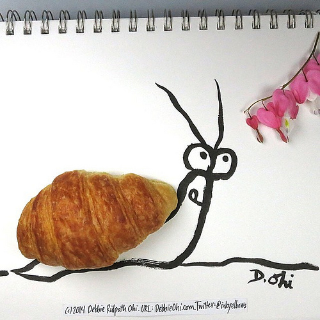 D. Ohi
(c) 2014 Debbie Ridpath Ohi. URL: DebbieOhi.com. Twitter: @inkyelbows